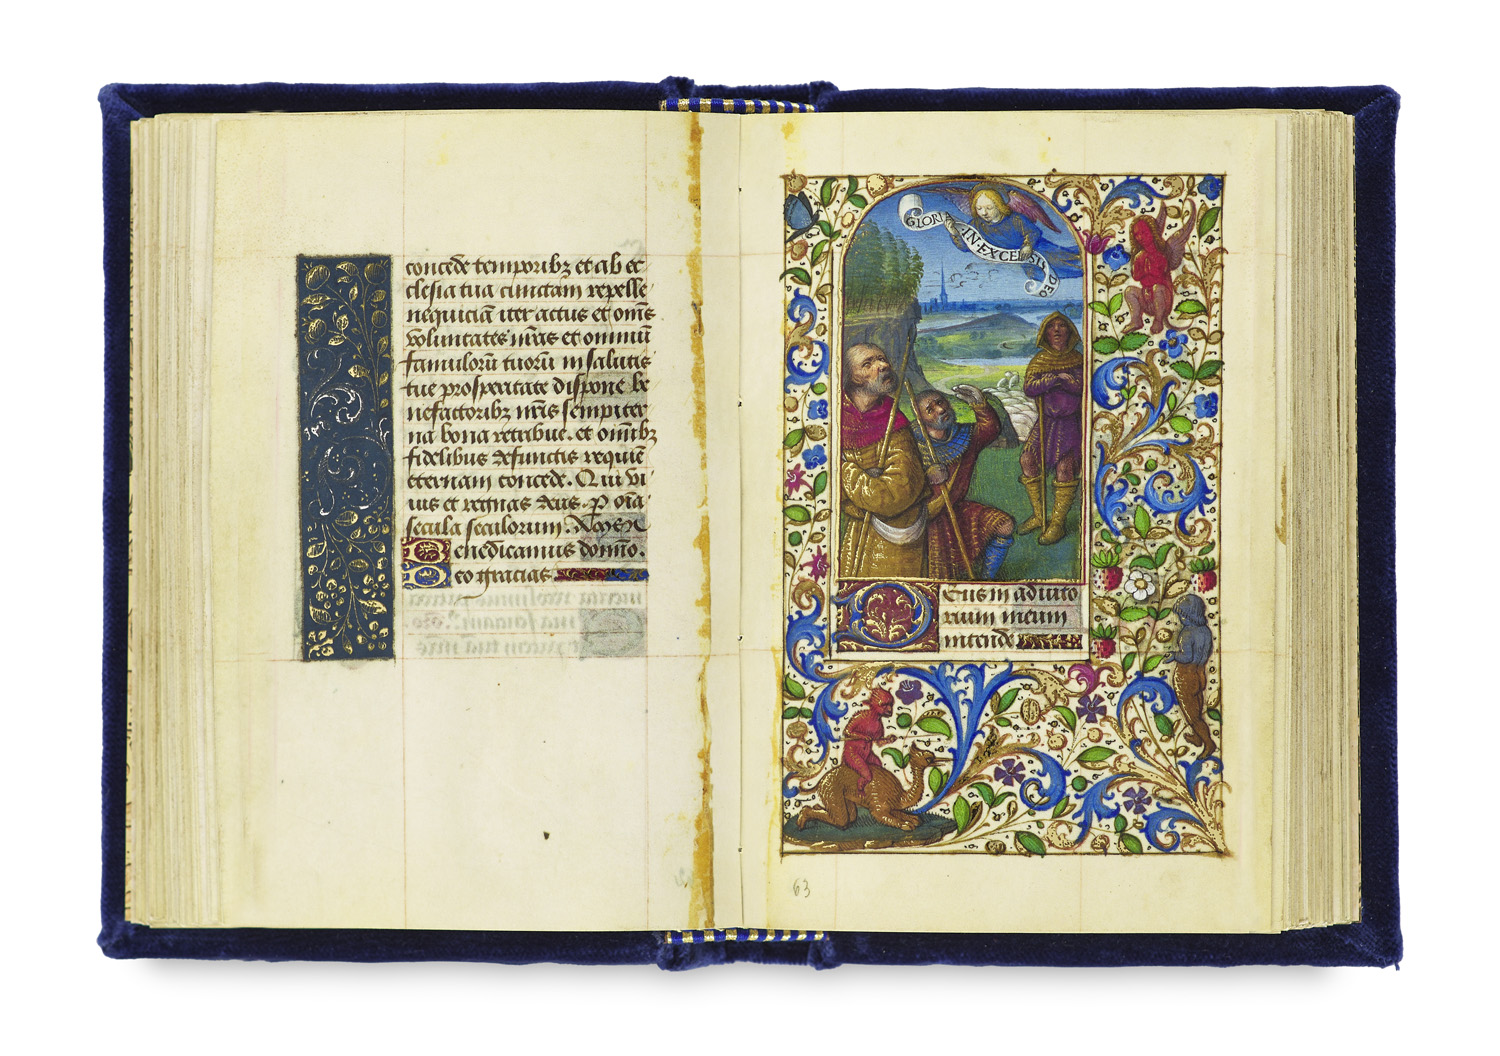 concede temporibꝫ et ab ec
clesia tua cunctam repelle
nequiciā iter actus et om̄s
voluntates nr̄as et omniū
famulorū tuorū in salutis
tue prosperitate dispone be
nefactoribꝫ nr̄is sempiter
na bona retribue. et om̄ibꝫ
fidelibus defunctis requiē
eternam concede. Qui vi
uis et regnas deus. P̲ om̄ia
secula seculorum. Amen
Benedicamus domīno.
Deo gracias
GLORIA·IN·EXCELSIS DEO
Deus in adiuto
rium meum
intende
63